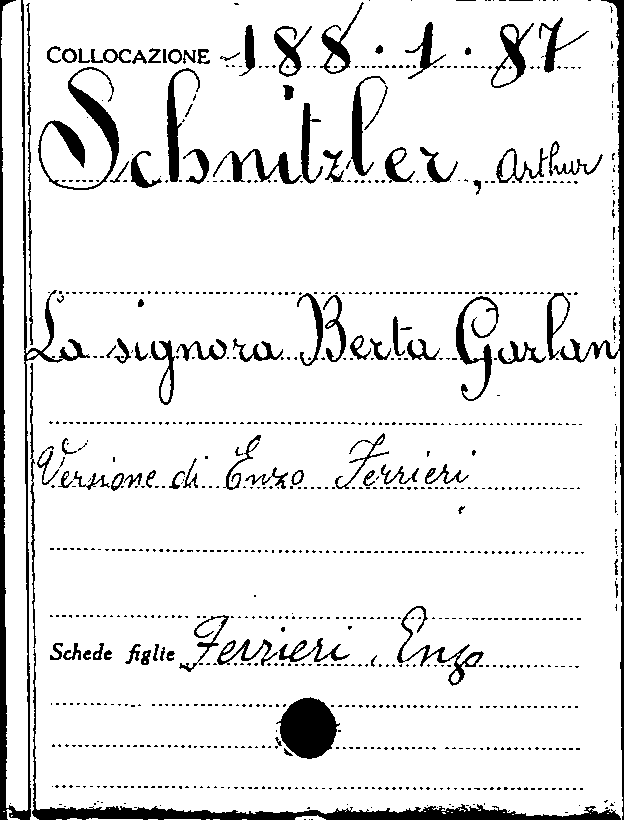 COLLOCAZIONE 188.1.87
Schnitzler, Arthur
La signora Berta Garlan
Versione di Enzo Ferrieri
Schede figlie Ferrieri, Enzo